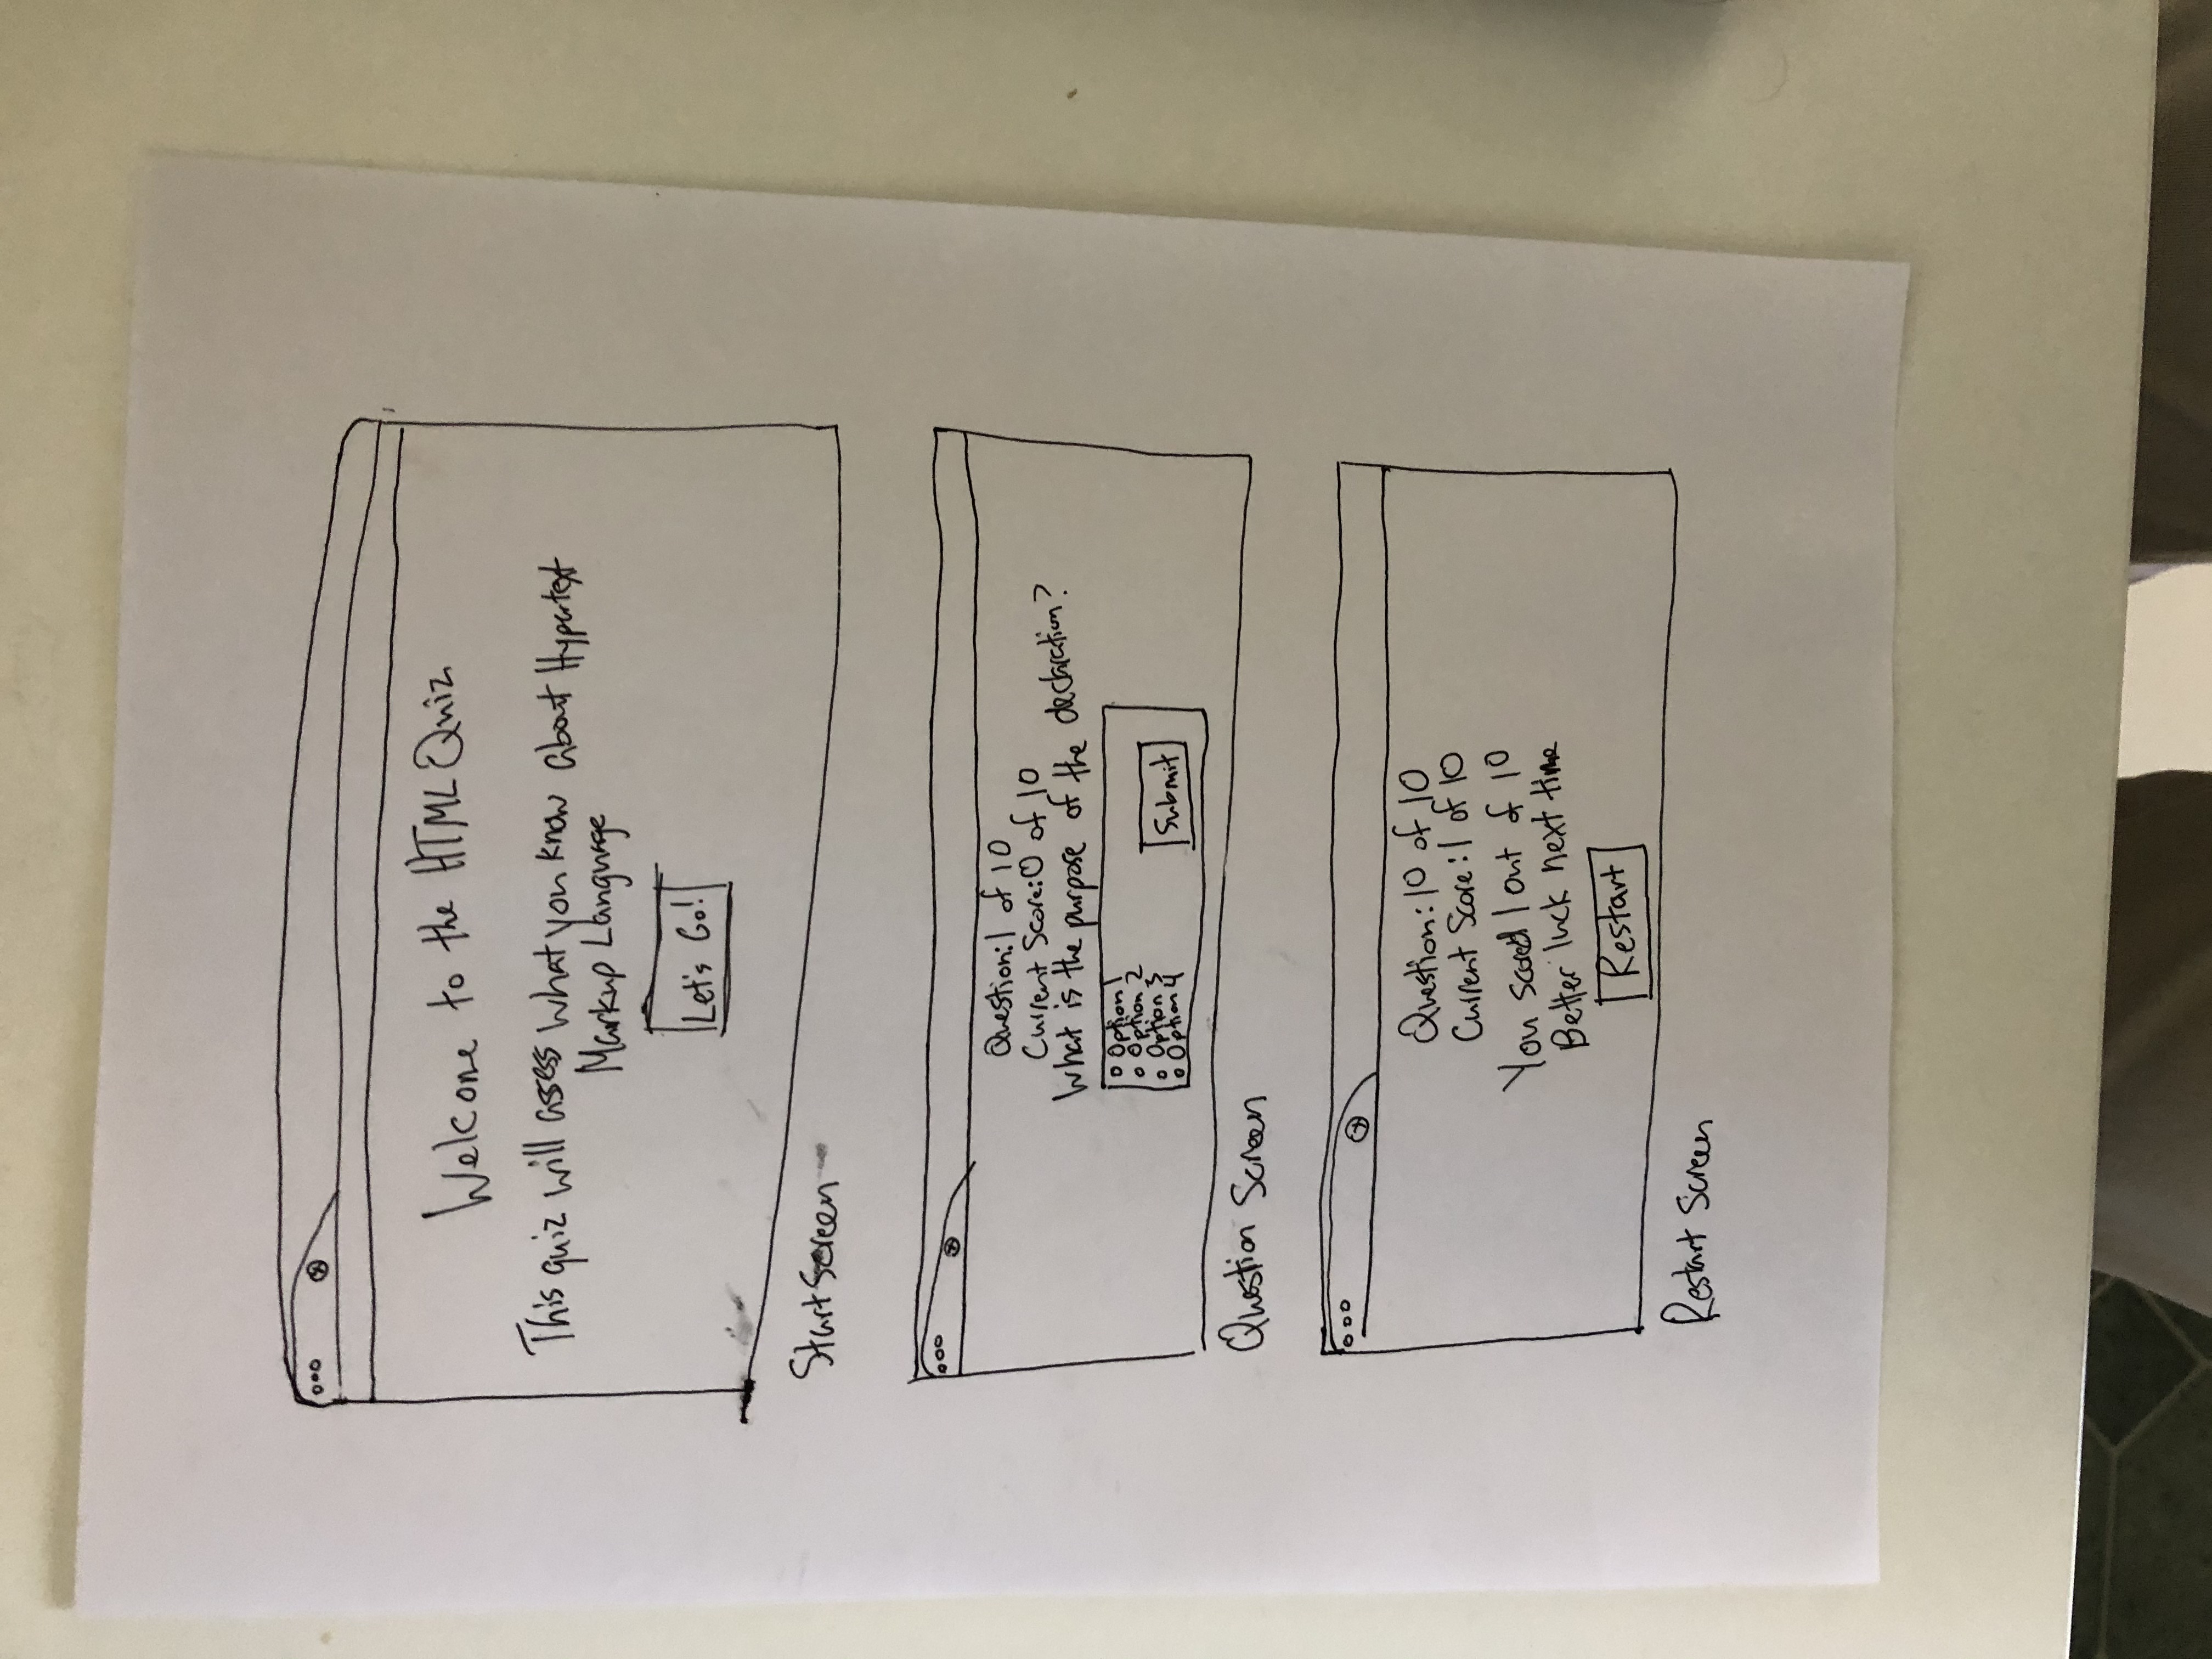 Welcome to the HTML Quiz
This quiz will assess what you know about Hypertext
Markup Language
Let's Go!
Start Screen
Question: 1 of 10
Current Score: 0 of 10
What is the purpose of the declaration?
Option 1
Option 2
Option 3
Option 4
Submit
Question Screen
Question: 10 of 10
Current Score: 1 of 10
You scored 1 out of 10
Better luck next time
Restart
Restart Screen